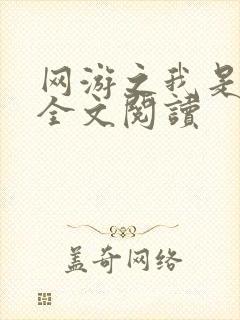 网游之我是
全文閱讀
盖奇网络